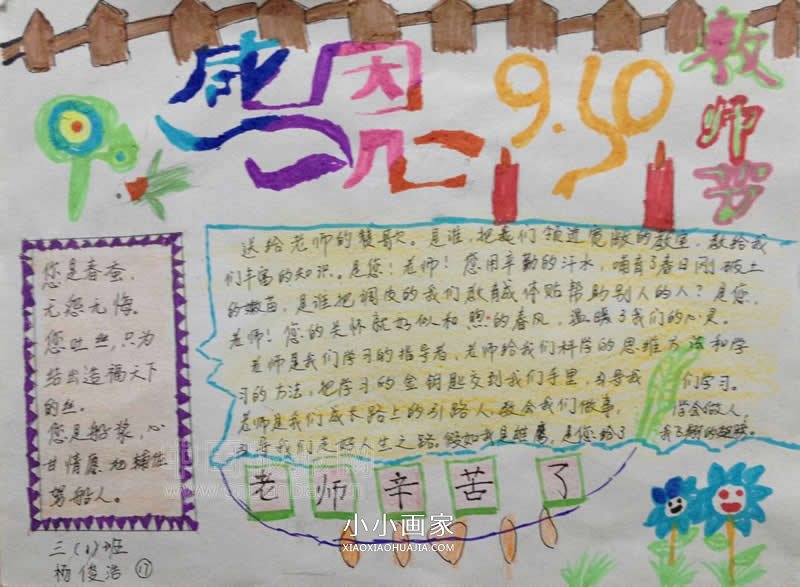 感恩
9.10
教师节
您是春蚕，
无怨无悔。
您吐丝，只为
结出造福天下
的丝。
您是船桨，心
甘情愿地
驾船人。
送给老师的赞歌。是谁，把我们领进宽敞的教室，教给我
们丰富的知识。是您！老师！您用辛勤的汗水，哺育了春日刚破土
的嫩苗，是谁把调皮的我们教育成体贴帮助别人的人？是您，
老师！您的关怀就好似和煦的春风，温暖了我们的心灵。
老师是我们学习的指导者，老师给我们科学的思维方法和学
习的方法，把学习的金钥匙交到我们手里，引导我们学习。
老师是我们成长路上的引路人，教会我们做事，学会做人，
引导我们走好人生之路。假如我是雄鹰，是您给了我飞翔的翅膀。
老师辛苦了
三（1）班
杨俊浩 17
小小画家
XIAOXIAOHUAJIA.COM